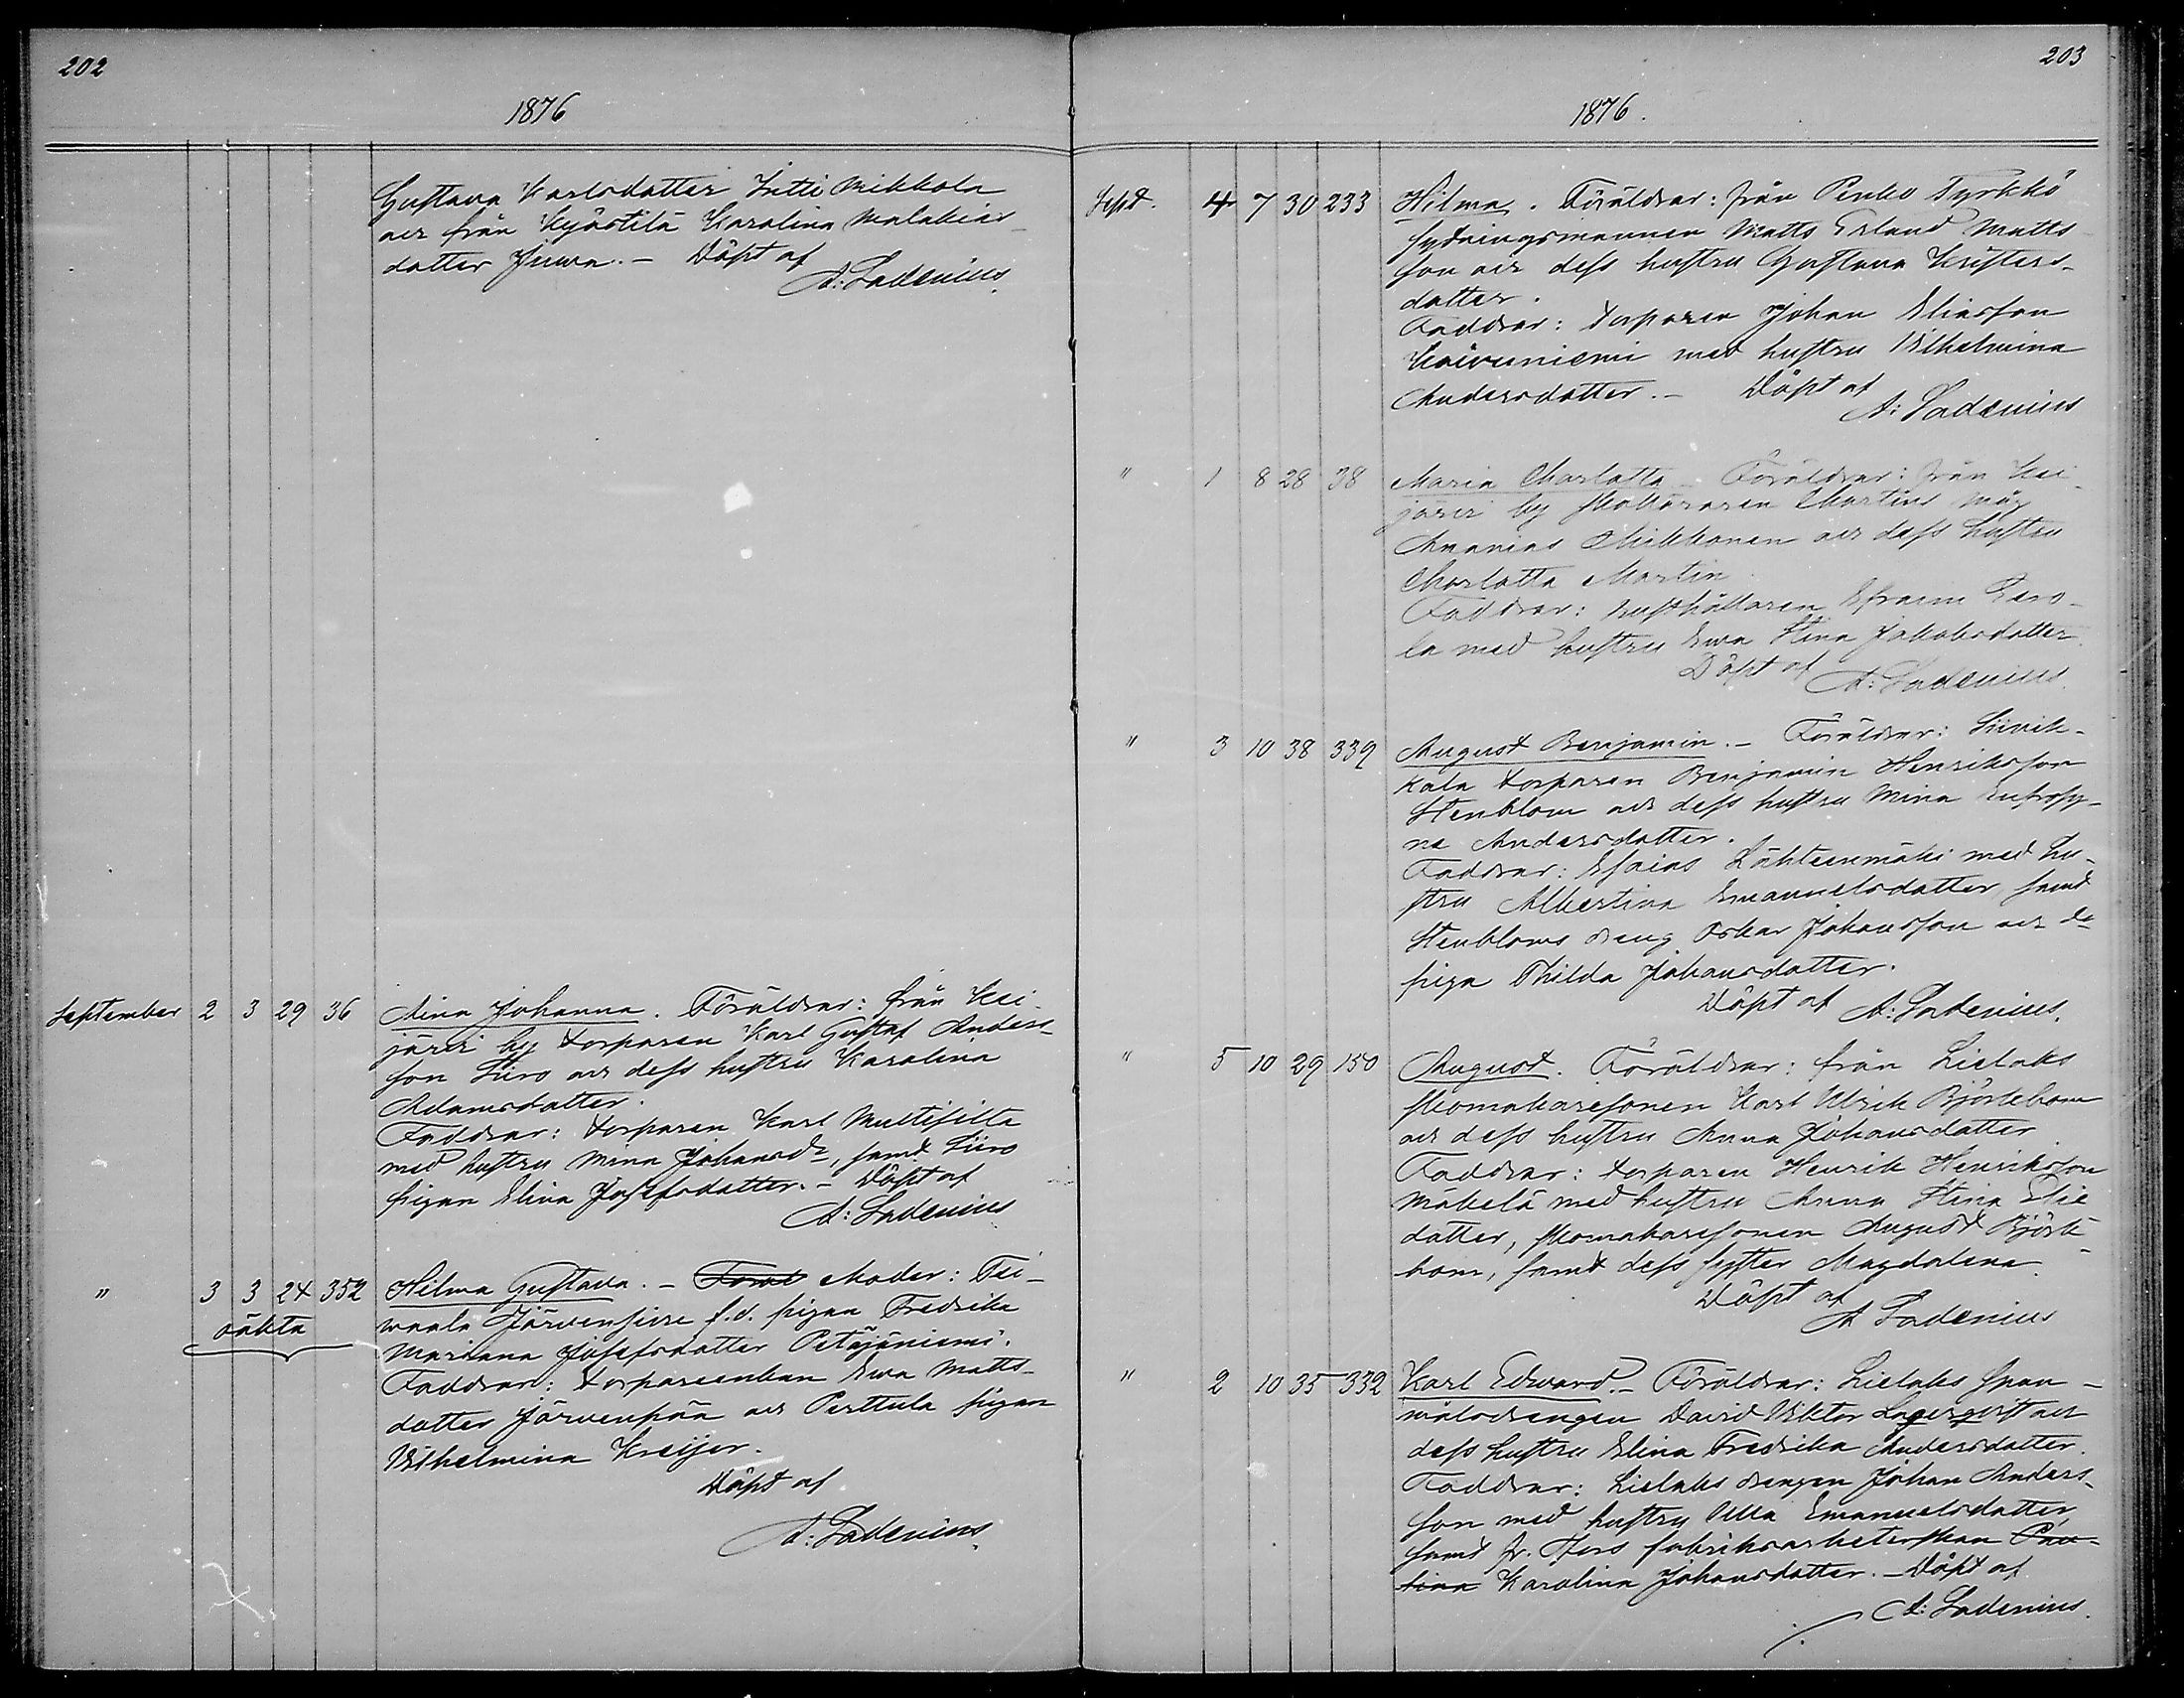 202
1876
Gustava Karlsdotter Intti Mikkola
och från Kyöstilä Karolina Malakias-
dotter Juva. - Döpt af
A: Ladenius.
September 2 3 29 36 Aina Johanna. Föräldrar: från Kei-
järvi by torparen Karl Gustaf Anders-
son Siiro och dess hustru Karolina
Adamsdotter.
Faddrar: torparen Karl Multisilta
med hustru Mina Johansdr, samt Siiro
pigan Elina Josefsdotter. - Döpt af
A: Ladenius
" 3 3 24 352 Hilma Gustava. - Föräl Moder: Tai-
oäkta
waala Järvensivu f.d. pigan Fredrika
Mariana Josefsdotter Petäjäniemi.
Faddrar: torpareenkan Ewa Matts-
dotter Järvenpää och Perttula pigan
Vilhelmina Kreijer.
Döpt af
A: Ladenius.
203
1876.
Sept. 4 7 30 233 Hilma. Föräldrar: från Penko Tyrkkö
sytningsmannen Matts Erland Matts-
son och dess hustru Gustava Kristers-
dotter.
Faddrar: torparen Johan Eliasson
Koivuniemi med hustru Vilhelmina
Andersdotter. - Döpt af
A: Ladenius
" 1 8 28 38 Maria Charlotta. Föräldrar: från Kei-
järvi by skattöraren Martins måg
Ananias Mikkonen och dess hustru
Charlotta Martin.
Faddrar: rusthållaren Efraim Eero-
la med hustru Ewa Stina Jakobsdotter.
Döpt af
A: Ladenius.
" 3 10 38 339 August Benjamin. - Föräldrar: Siivik-
kala torparen Benjamin Henriksson
Stenblom och dess hustru Mina Eufrosy-
ne Andersdotter.
Faddrar: Esaias Lähteenmäki med hu-
stru Albertina Emanuelsdotter samt
Stenbloms dreng Oskar Johansson och do
piga Thilda Johansdotter.
Döpt af A: Ladenius.
" 5 10 29 150 August. Föräldrar: från Lielaks
skomakaresonen Karl Ulrik Björkbom
och dess hustru Anna Johansdotter.
Faddrar: torparen Henrik Henriksson
Mäkelä med hustru Anna Stina Elie
dotter, skomakaresonen August Björk-
bom, samt dess syster Magdalena.
Döpt af
A Ladenius
" 2 10 35 332 Karl Edvard. - Föräldrar: Lielaks span-
målsdrengen David Viktor Lagerqvist och
dess hustru Elina Fredrika Andersdotter.
Faddrar: Lielaks drengen Johan Anders-
son med hustru Ulla Emanuelsdotter,
samt fr. Fors fabriksarbeterskan Pau-
lina Karolina Johansdotter. - Döpt af
A: Ladenius.